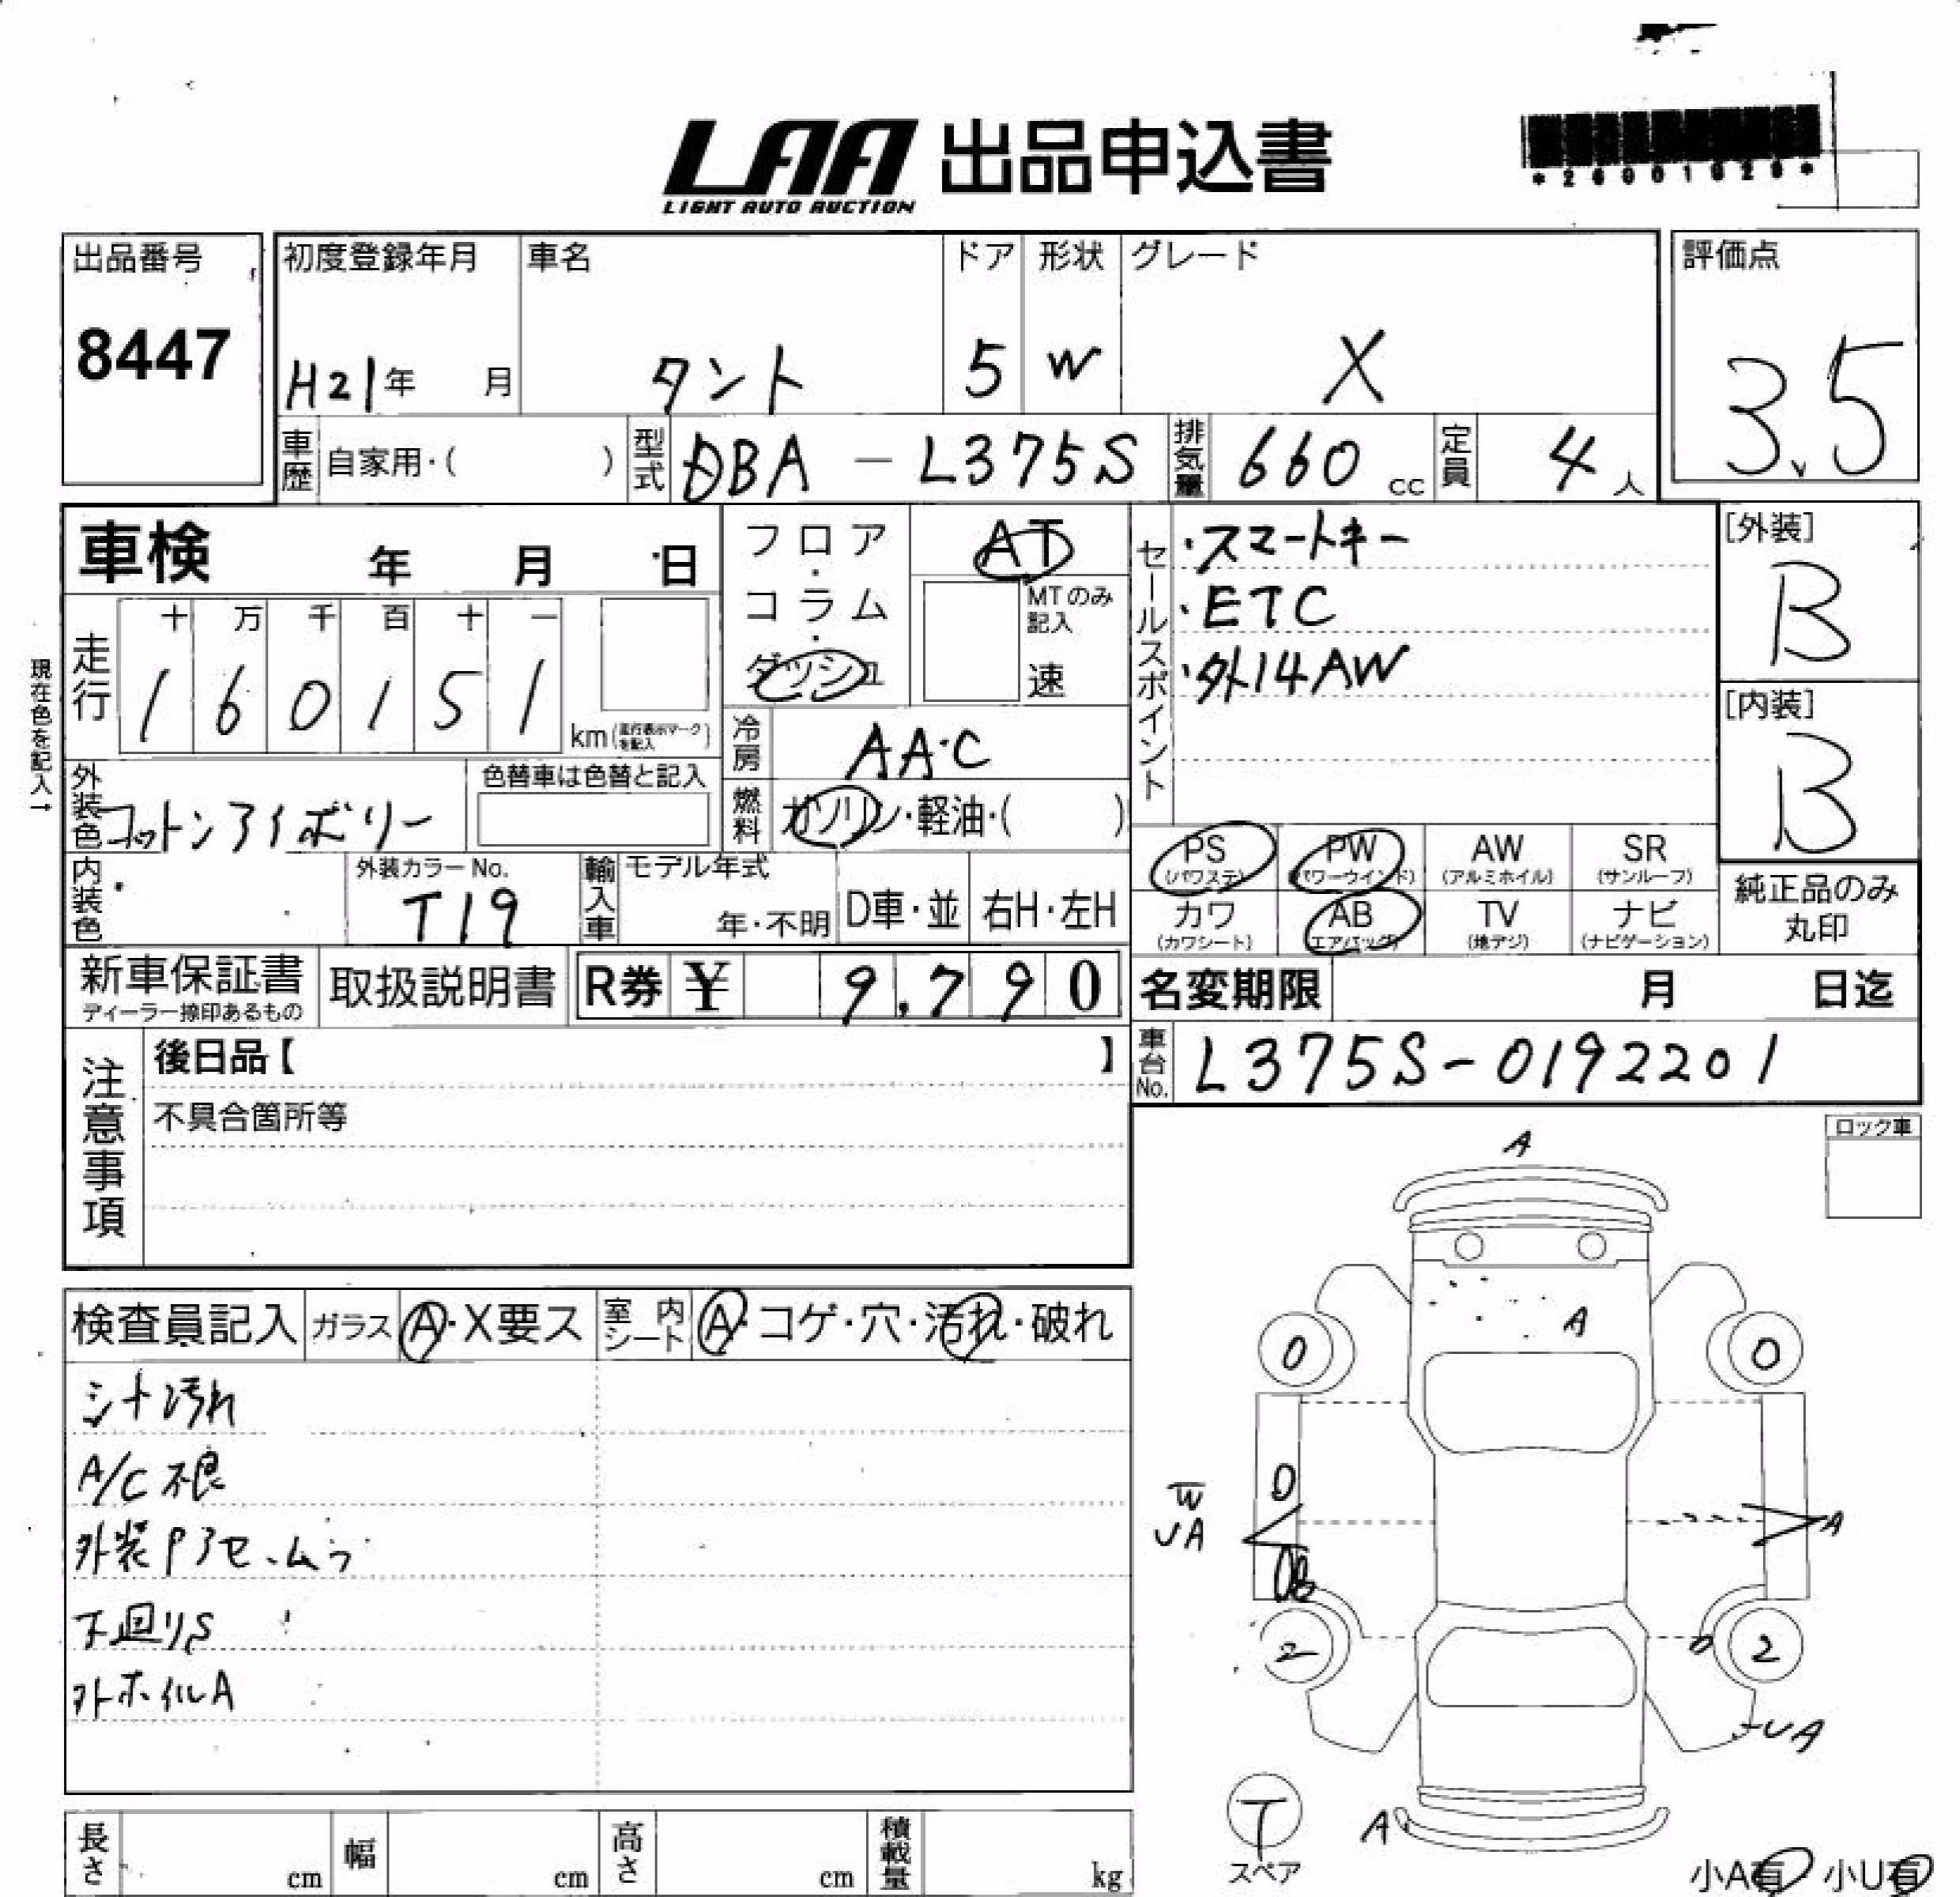 LAA 出品申込書
LIGHT AUTO AUCTION
出品番号
8447
初度登録年月
H21年 月
車名
タント
ドア
5
形状
W
グレード
X
評価点
3.5
車歴 自家用・( )
型式 DBA - L375S
排気量 660 cc
定員 4 人
車検 年 月 日
フロア・コラム・ダッシュ
AT
MTのみ記入
速
セールスポイント
・スマートキー
・ETC
・外14AW
[外装]
B
[内装]
B
現在色を記入→
走行
十 万 千 百 十 一
1 6 0 1 5 1
km (走行表示マークを記入)
冷房 AAC
燃料 ガソリン・軽油・( )
外装色 コットンアイボリー
色替車は色替と記入
内装色
外装カラーNo.
T19
輸入車
モデル年式
年・不明
D車・並
右H・左H
PS (パワステ)
PW (パワーウインド)
AW (アルミホイル)
SR (サンルーフ)
カワ (カワシート)
AB (エアバッグ)
TV (地デジ)
ナビ (ナビゲーション)
純正品のみ丸印
新車保証書
ディーラー捺印あるもの
取扱説明書
R券 ¥ 9,790
名変期限 月 日迄
車台No. L375S-0192201
注意事項
後日品【 】
不具合箇所等
ロック車
検査員記入
ガラス A・X要ス
室内シート A・コゲ・穴・汚れ・破れ
シート汚れ
A/C不良
外装Pアセ、ムラ
下廻りS
外ホイルA
A
A
0
0
W
UA
A
2
2
UA
A
T
スペア
小A有 小U有
長さ cm
幅 cm
高さ cm
積載量 kg